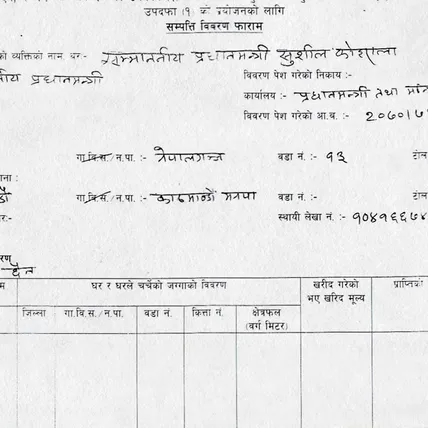 उपदफा (१) को प्रयोजनको लागि
सम्पत्ति विवरण फाराम
को व्यक्तिको नाम थर:- सम्माननीय प्रधानमन्त्री सुशील कोइराला
प्रधानमन्त्री विवरण पेश गरेको निकाय :-
कार्यालय :- प्रधानमन्त्री तथा
विवरण पेश गरेको आ.व. :- २०७०।७
गा.वि.स./न.पा. :- नेपालगञ्ज वडा नं. :- १३ टोल
गा.वि.स./न.पा. :- काठमाण्डौं मनपा वडा नं. :- टोल
स्थायी लेखा नं. :- ९०४१६६७४
छैन
घर र घरले चर्चेको जग्गाको विवरण खरीद गरेको प्राप्तिको
भए खरिद मूल्य
जिल्ला गा.वि.स./न.पा. वडा नं. कित्ता नं. क्षेत्रफल
(वर्ग मिटर)